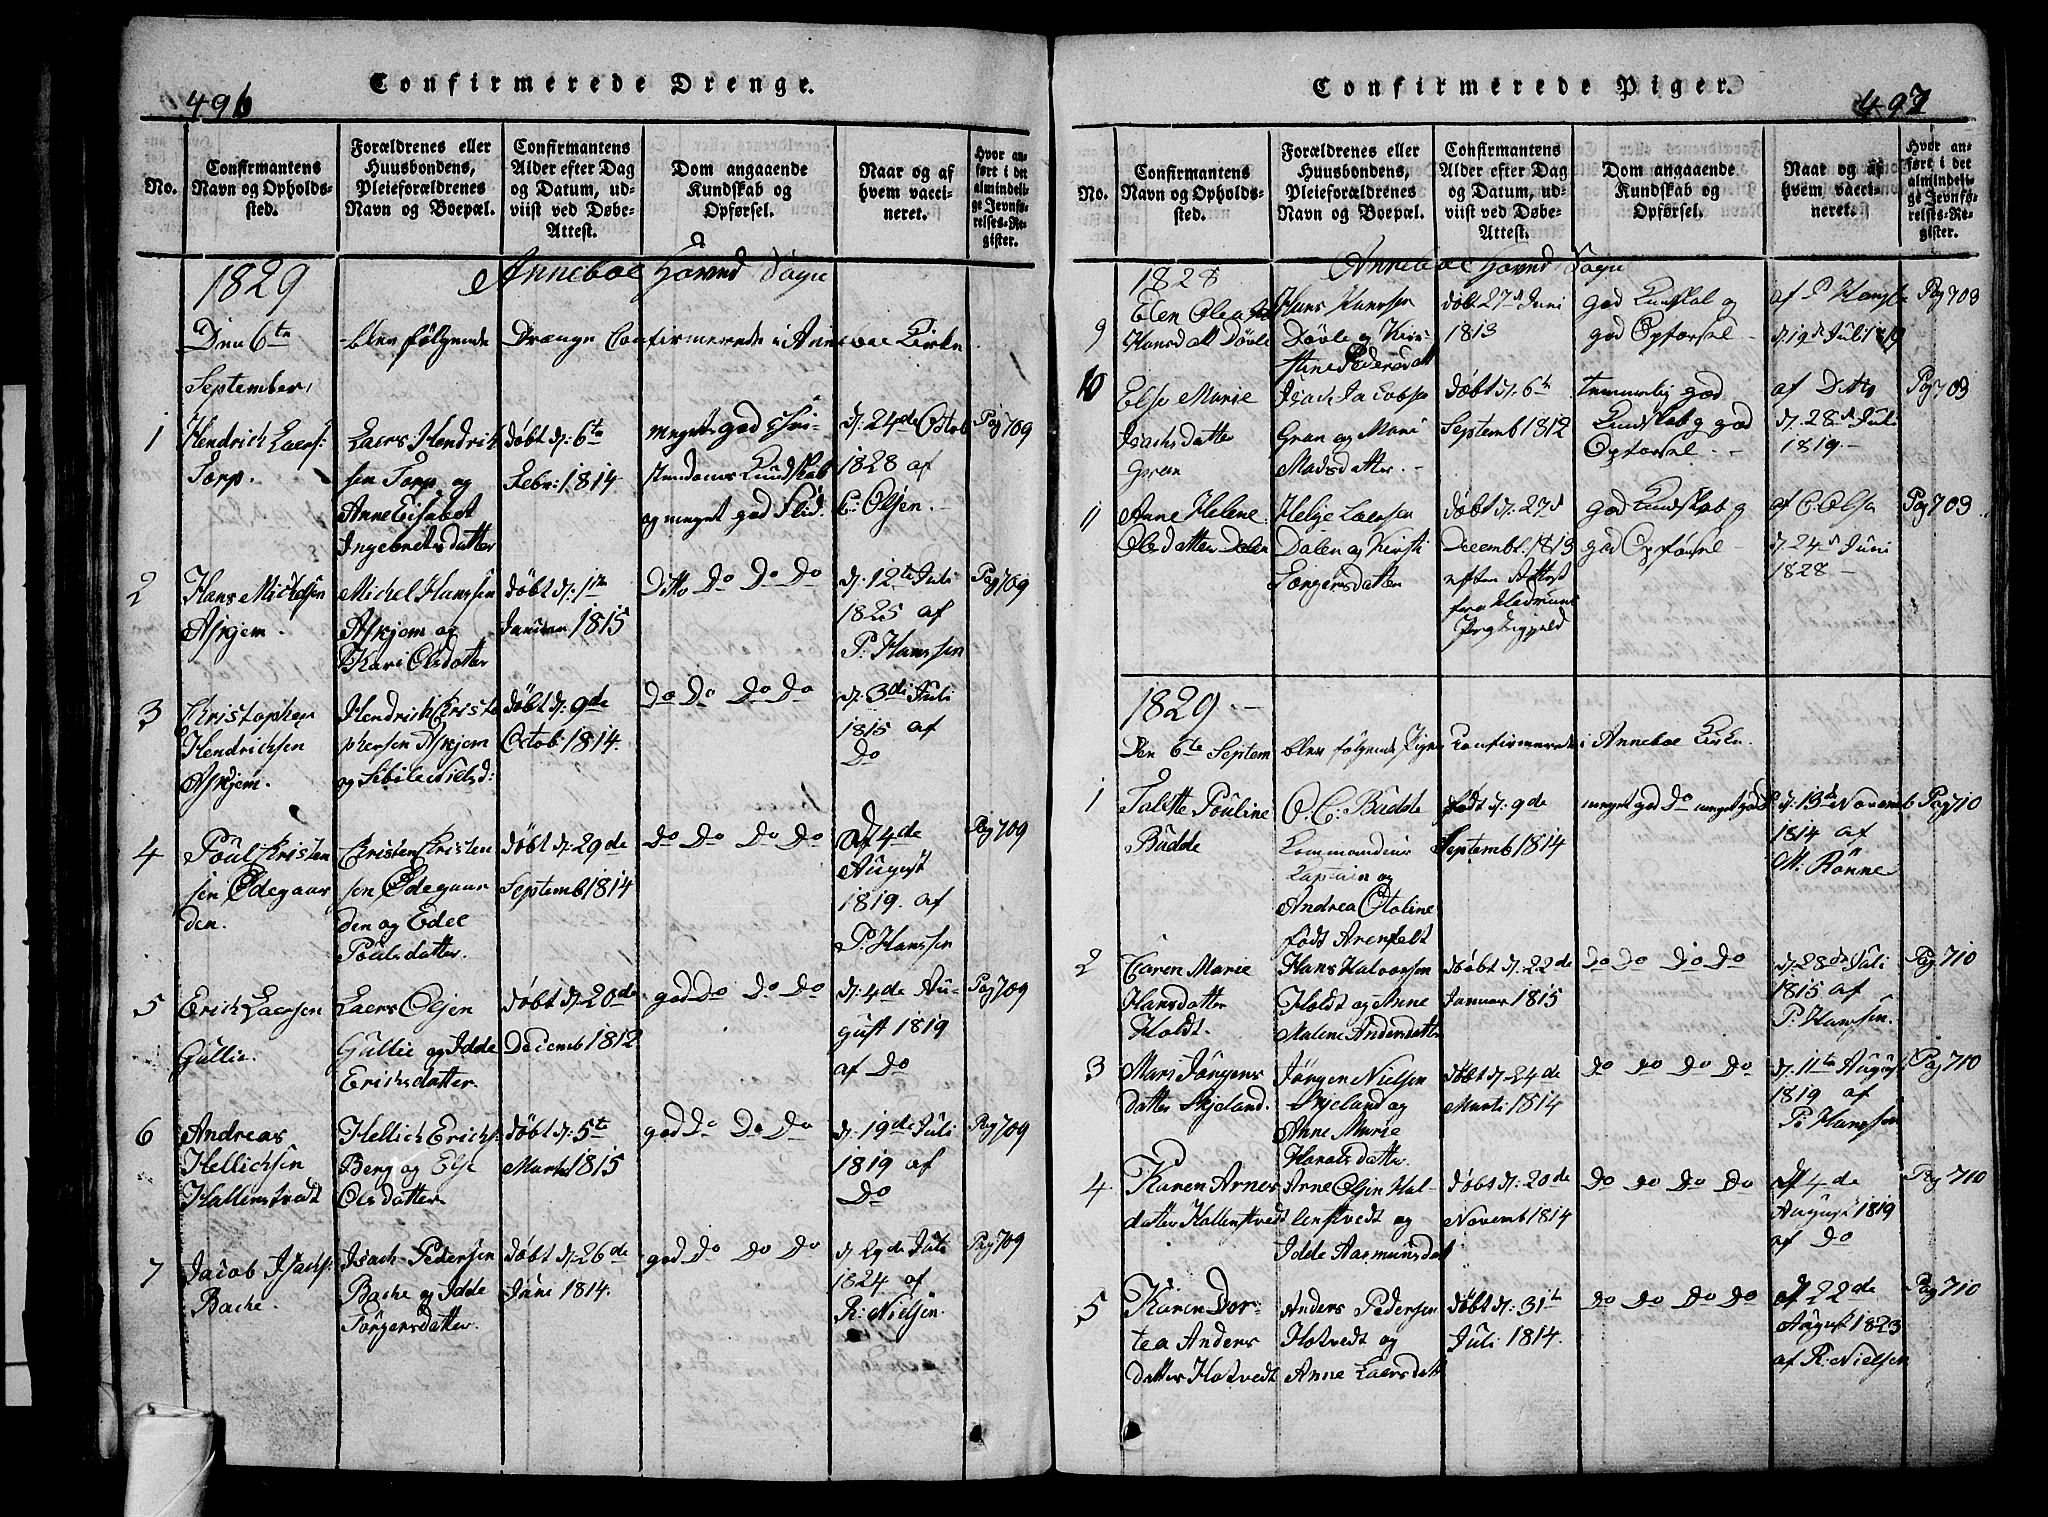 496
Confirmerede Drenge.
No.
Confirmantens
Navn og Opholds-
sted.
Forældrenes eller
Huusbondens,
Pleieforældrenes
Navn og Boepæl.
Confirmantens
Alder efter Dag
og Datum, ud-
viist ved Døbe-
Attest.
Dom angaaende
Kundskab og
Opførsel.
Naar og af
hvem vacci-
neret.
Hvor an-
ført i det
almindeli-
ge Jevnfø-
relses-Re-
gister.
1829 Anneboe Hovud Sogn
Den 6te blev følgende Drenge Confirmerede i Anneboe Kirke
September
1
Hendrich Laers:
Torp.
Laers Hendrik
sen Torp og
Anne Elisabet
Ingebretsdatter
døbt d: 6te
Febr: 1814
meget god Chri-
stendoms Kundskab
og meget god Flid.
d: 24de Octob
1828 af
C: Olsen.
Pag 709
2
Hans Michelsen
Askjem.
Michel Hanssen
Askjem og
Kari Olsdatter
døbt d: 1te
Januar 1815
Ditto Do Do Do
d: 12te Juli
1825 af
P: Hanssen
Pag 709
3
Kristopher
Hendrichsen
Askjem.
Hendrich Christo
phersen Askjem
og Sibile Nielsd:
døbt d: 9de
Octob: 1814.
Do Do Do Do
d: 3di Juli
1815 af
Do
4
Poul Kristen
sen Ødegaar
den.
Christen Kristen
sen Ødegaar
den og Edel
Poulsdatter.
døbt d: 29de
Septemb 1814
Do Do Do Do
d: 4de
August
1819. af
P: Hanssen
Pag 709
5
Erich Laersen
Gullie.
Laers Olsen
Gullie og Idde
Erichsdatter.
døbt d: 20de
Decemb 1812.
god Do Do Do
d: 4de Au-
gust 1819
af Do
Pag 709
6
Andreas
Hellichsen
Hallenstvedt
Hellich Erichs:
Berg og Else
Olsdatter.
døbt d: 5te
Marti 1815
god Do Do Do
d: 19de Juli
1819 af
Do
Pag 709
7
Jacob Isachs:
Bache.
Isach Pedersen
Bache og Idde
Jørgensdatter.
døbt d: 26de
Juni 1814.
god Do Do Do
d 29de Juli
1824 af
R: Nielsen
Pag 709
497
Confirmerede Piger.
No.
Confirmantens
Navn og Opholds-
sted.
Forældrenes eller
Huusbondens,
Pleieforældrenes
Navn og Boepæl.
Confirmantens
Alder efter Dag
og Datum, ud-
viist ved Døbe-
Attest.
Dom angaaende
Kundskab og
Opførsel.
Naar og af
hvem vacci-
neret.
Hvor an-
ført i det
almindeli-
ge Jevnfø-
relses-Re-
gister.
1828 Anneboe Hovud Sogn
9
Hansdatt Døvle
Hans Hanssen
Døvle og Kir-
stine Pedersdatt
døbt 27d Juni
1813
god Kundskab og
god Opførsel -
d. 19d Juli 1819
Pag 703
10
Else Marie
Isachsdatter
Gran
Isach Jacobsen
Gran og Mari
Madsdatter. -
Døbt d. 6te
Septemb 1812
temmelig god
Kundskab og god
Opførsel. -
af Ditto
d. 28d Juli
1819. -
Pag 703
11
Anne Helene
Olsdatter Dalen
Helge Laersen
Dalen og Kirsti
Jørgensdatter
døbt d. 27d
Decemb: 1813
efter Attest
fra Hedrums
Præstegjæld
god Kundskab og
god Opførsel -
af C Olsen
d. 24d Juni
1828 -
Pag 703
1829. -
Den 6te Septem blev følgende Piger Confirmerede i Anneboe Kirke.
1
Talette Pouline
Budde
O. C. Budde
Kommandeur
Kaptain og
Andrea Otoline
født Arenfelt
født d: 9de
Septemb 1814
meget god Do meget god Do
d: 13de Novemb
1814 af
M. Rönne
Pag 710
2
Caren Marie
Hansdatter
Holdt.
Hans Halvorsen
Holdt og Anne
Malene Andersdatter
døbt d: 22de
Januar 1815
Do Do Do Do
d: 28de Juli
1815 af
P: Hanssen.
Pag 710
3
Mari Jörgens
datter Skjeland.
Jörgen Nielsen
Skjeland og
Anne Marie
Haralsdatter.
døbt d: 24de
Marti 1814
Do Do Do Do
d: 11te August
1819 af
P: Hanssen
Pag 710
4
Karen Arnes
datter Hallenstvedt
Arne Olsen Hal-
lenstvedt og
Idde Aasmunsdatt
døbt d: 20de
Novemb 1814
Do Do Do Do
d 4de
August 1819
af Do
Pag 710
5
Karen Dor-
tea Anders
datter Hotvedt
Anders Pedersen
Hotvedt og
Anne Laersdatt
døbt d: 31te
Juli 1814.
Do Do Do Do
d 22de
August 1823
af R: Nielsen
Pag 710